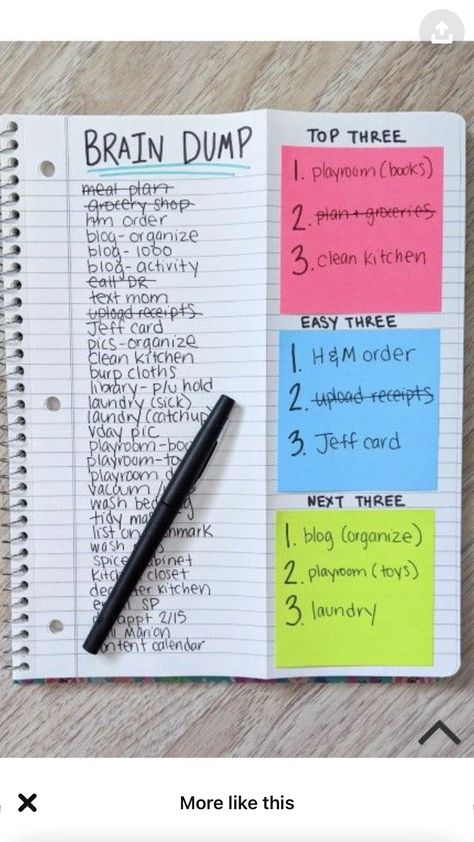 BRAIN DUMP
meal plan
grocery shop
hm order
blog- organize
blog- 1000
blog- activity
call DR
text mom
upload receipts
Jeff card
pics-organize
clean kitchen
burp cloths
library- p/u hold
laundry (sick)
laundry (catchup)
vday pic
playroom-
playroom-
playroom
vacuum
wash
tidy
list on
wash
spice
closet
kitchen
SP
appt 2/15
Marion
content calendar
TOP THREE
1. playroom (books)
2. plan + groceries
3. clean kitchen
EASY THREE
1. H&M order
2. upload receipts
3. Jeff card
NEXT THREE
1. blog (organize)
2. playroom (toys)
3. laundry
More like this